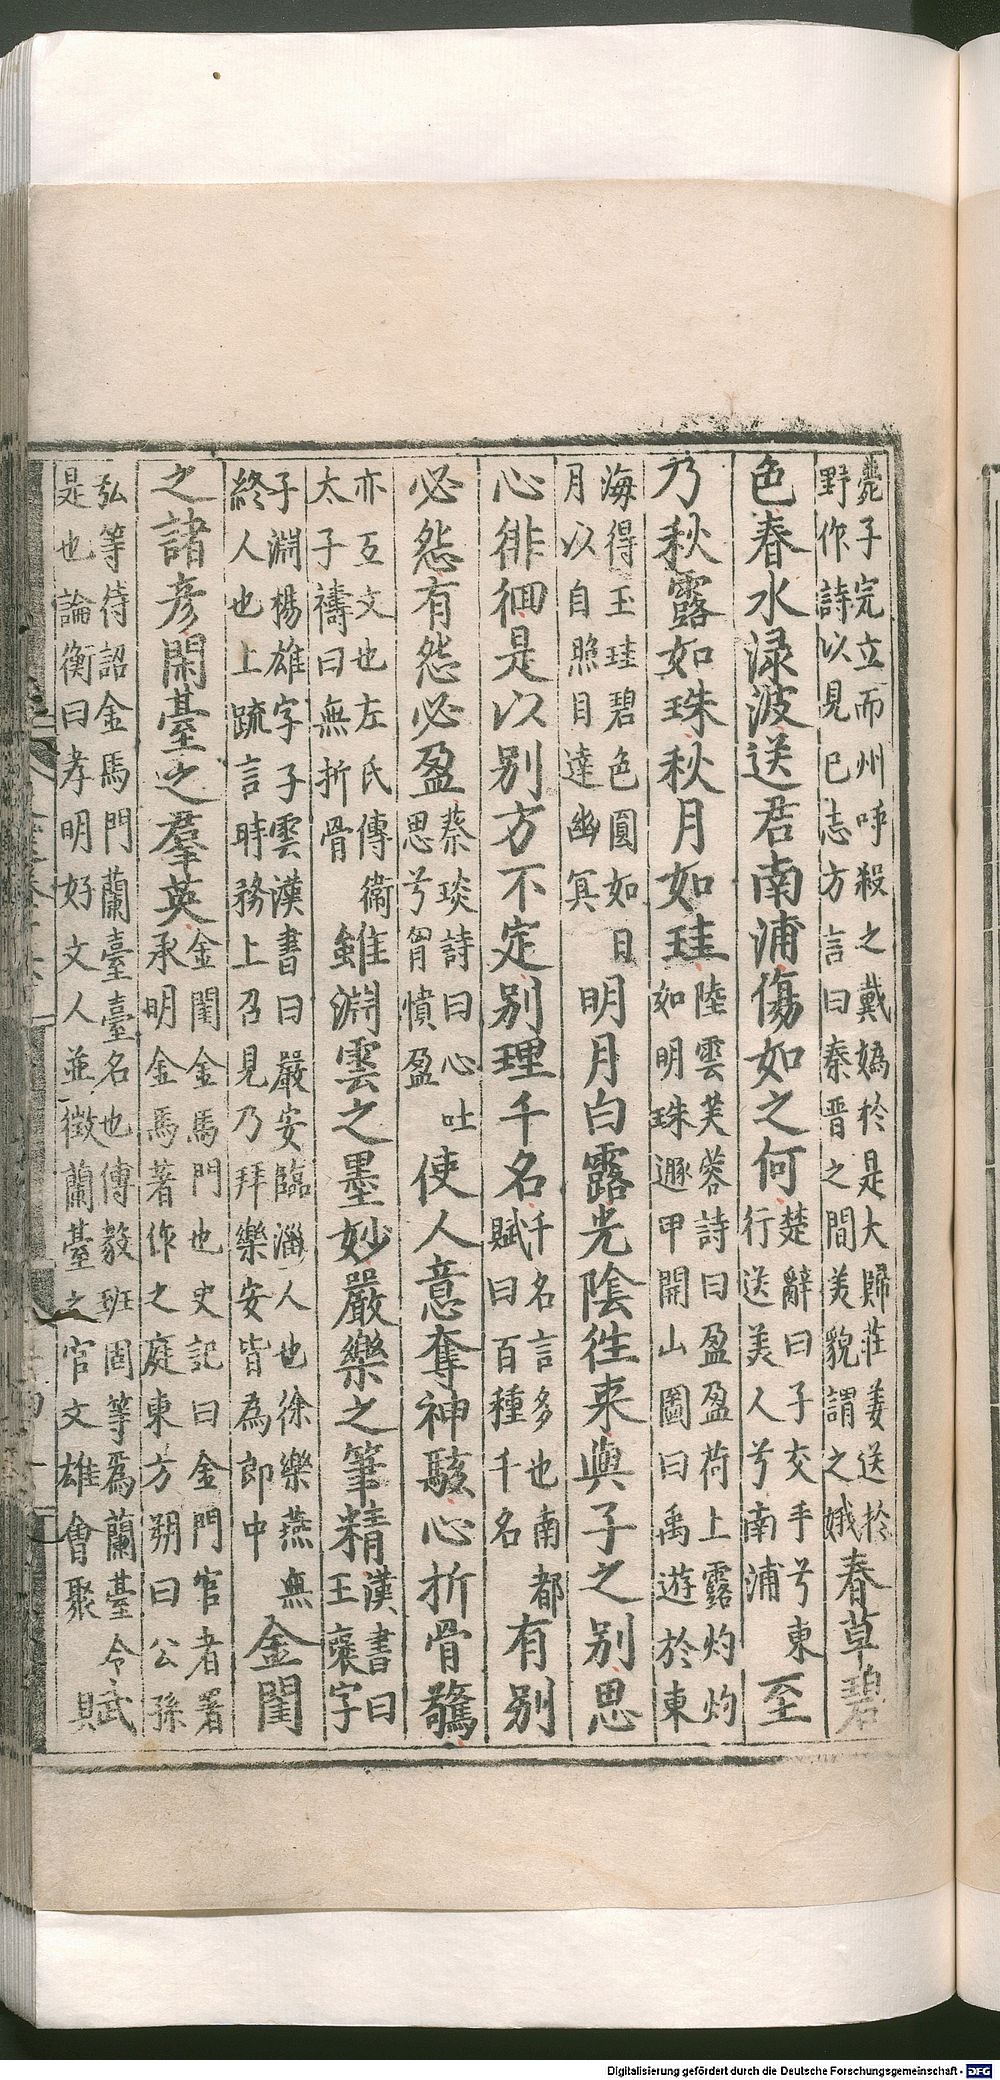 薨子完立而州吁殺之戴媯於是大歸莊姜送於
野作詩以見已志方言曰秦晉之間美貌謂之娥
春草碧
色春水淥波送君南浦傷如之何
楚辭曰子交手兮東
行送美人兮南浦
至
乃秋露如珠秋月如珪
陸雲芙蓉詩曰盈盈荷上露灼灼
如明珠遯甲開山圖曰禹遊於東
海得玉珪碧色圓如日
月以自照目達幽冥
明月白露光陰往来與子之别思
心徘徊是以别方不定别理千名
千名言多也南都
賦曰百種千名
有别
必怨有怨必盈
蔡琰詩曰心吐
思兮胷憤盈
使人意奪神駭心折骨驚
亦互文也左氏傳衛
太子禱曰無折骨
雖淵雲之墨妙嚴樂之筆精
漢書曰
王襃字
子淵楊雄字子雲漢書曰嚴安臨淄人也徐樂燕無
終人也上疏言時務上召見乃拜樂安皆為郎中
金閨
之諸彥閑臺之羣英
金閨金馬門也史記曰金門宦者署
承明金馬著作之庭東方朔曰公孫
弘等待詔金馬門蘭臺臺名也傅毅班固等爲蘭臺令
是也論衡曰孝明好文人並徵蘭臺之官文雄會聚
賦
具
Digitalisierung gefördert durch die Deutsche Forschungsgemeinschaft - DFG